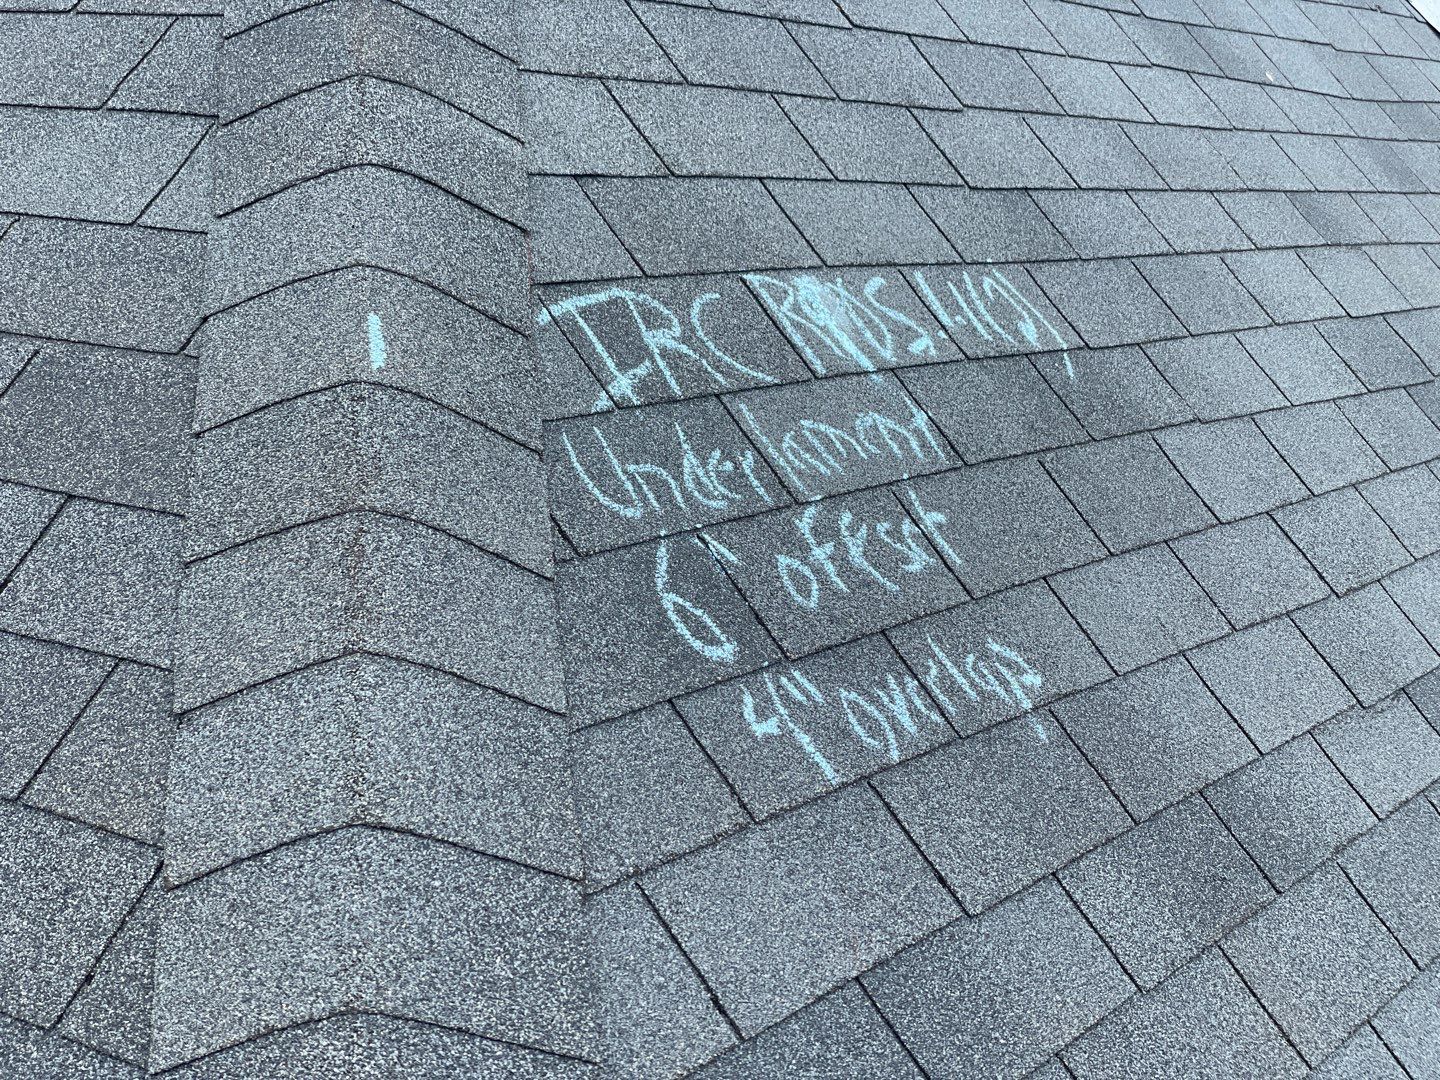 IRC R905.1.1(2)
Underlament
6" offset
4" overlap